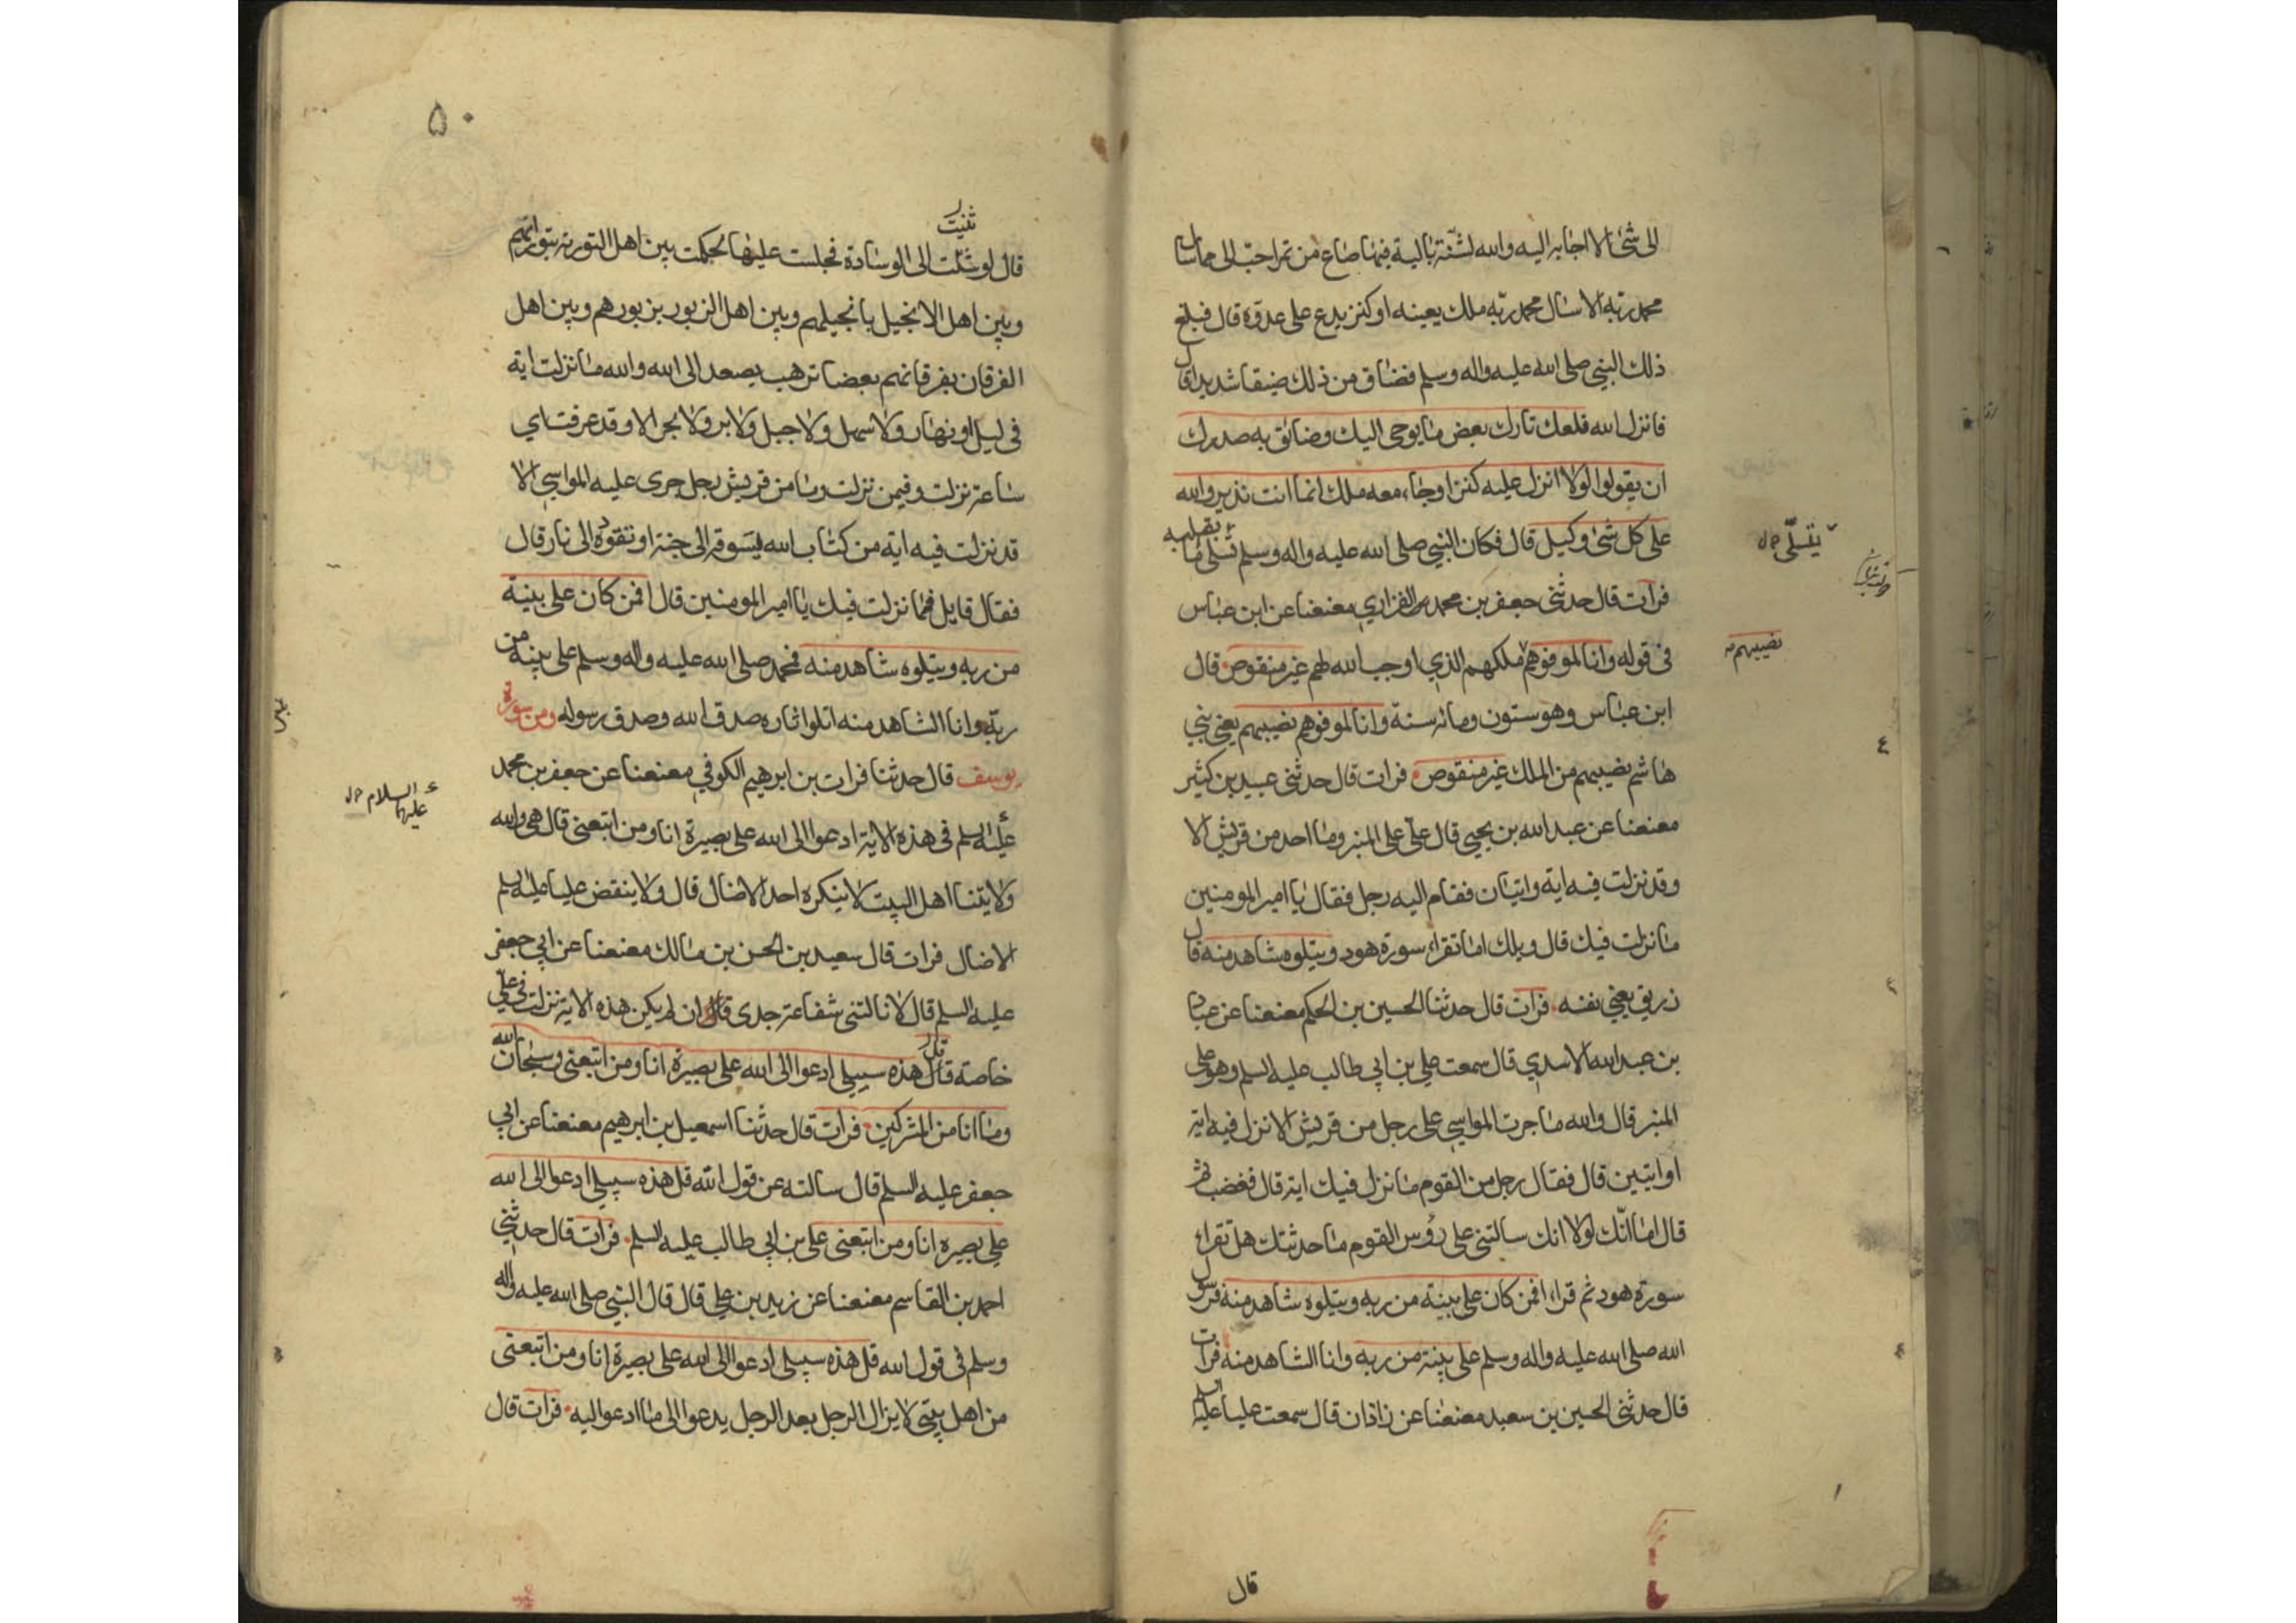 الى شئ الا اجابه اليه والله لشنة بالية فيها صاع من تمر احب الى مما سال
محمد ربه الا سال محمد ربه ملك يعينه او كنز يدع على عدوه قال فبلغ
ذلك النبي صلى الله عليه واله وسلم فضاق من ذلك ضيقا شديدا قال
فانزل الله فلعلك تارك بعض ما يوحى اليك وضائق به صدرك
ان يقولوا لولا انزل عليه كنز او جاء معه ملك انما انت نذير والله
على كل شئ وكيل قال فكان النبي صلى الله عليه واله وسلم تسلى ما بقلبه
يتسلى
فرات قال حدثنى جعفر بن محمد الفزاري معنعنا عن ابن عباس
فى قوله وانا لموفوهم ملكهم الذي اوجب الله لهم غير منقوص قال
نصيبهم
ابن عباس وهو ستون ومائه سنة وانا لموفوهم نصيبهم يعني بني
هاشم نصيبهم من الملك غير منقوص فرات قال حدثنى عبيد بن كثير
معنعنا عن عبد الله بن يحيى قال علي على المنبر وما احد من قريش الا
وقد نزلت فيه اية وايتان فقام اليه رجل فقال يا امير المومنين
ما نزلت فيك قال ويلك اما تقراء سورة هود ويتلوه شاهد منه قال
زريق يعني نفسه فرات قال حدثنا الحسين بن الحكم معنعنا عن عباد
بن عبد الله الاسدي قال سمعت علي بن ابي طالب عليه السلم وهو على
المنبر قال والله ما جرت المواسي على رجل من قريش الا نزل فيه اية
او ايتين قال فقال رجل من القوم ما نزل فيك اية قال فغضب ثم
قال اما انك لولا انك سالتنى على رؤس القوم ما حدثتك هل تقراء
سورة هود ثم قراء افمن كان على بينة من ربه ويتلوه شاهد منه فرسول
الله صلى الله عليه واله وسلم على بينة من ربه وانا الشاهد منه فرات
قال حدثنى الحسين بن سعيد معنعنا عن زاذان قال سمعت عليا عليه السلم
قال
٥٠
ثنيت
قال لو شئت الى الوسادة فجلست عليها لحكمت بين اهل التورية بتوراتهم
وبين اهل الانجيل بانجيلهم وبين اهل الزبور بزبورهم وبين اهل
الفرقان بفرقانهم بعضا ترهب يصعد الى الله والله ما نزلت اية
فى ليل او نهار ولا سهل ولا جبل ولا بر ولا بحر الا وقد عرفت اي
ساعة نزلت وفيمن نزلت وما من قريش رجل جرى عليه المواسي الا
قد نزلت فيه اية من كتاب الله تسوقه الى جنة او تقوده الى نار قال
فقال قايل فما نزلت فيك يا امير المومنين قال افمن كان على بينة
من ربه ويتلوه شاهد منه فمحمد صلى الله عليه واله وسلم على بينة من
ربه وانا الشاهد منه اتلوا اثاره صدق الله وصدق رسوله ومن سورة
يوسف قال حدثنا فرات بن ابرهيم الكوفي معنعنا عن جعفر بن محمد
عليهما السلام
عليه السلم فى هذه الاية ادعوا الى الله على بصيرة انا ومن اتبعنى قال هى والله
ولايتنا اهل البيت لا ينكره احد الا ضال قال ولا ينقض عليا عليه السلم
الا ضال فرات قال سعيد بن الحسن بن مالك معنعنا عن ابي جعفر
عليه السلم قال لا نالتنى شفاعة جدى ان لم يكن هذه الاية نزلت فى علي
خاصة قال قل هذه سبيلى ادعوا الى الله على بصيرة انا ومن اتبعنى وسبحان الله
وما انا من المشركين فرات قال حدثنا اسمعيل بن ابرهيم معنعنا عن ابي
جعفر عليه السلم قال سالته عن قول الله قل هذه سبيلى ادعوا الى الله
على بصيره انا ومن اتبعنى علي بن ابي طالب عليه السلم فرات قال حدثني
احمد بن القاسم معنعنا عن زيد بن علي قال قال النبي صلى الله عليه واله
وسلم فى قول الله قل هذه سبيلى ادعوا الى الله على بصيرة انا ومن اتبعنى
من اهل بيتى لا يزال الرجل بعد الرجل يدعوا الى ما ادعوا اليه فرات قال